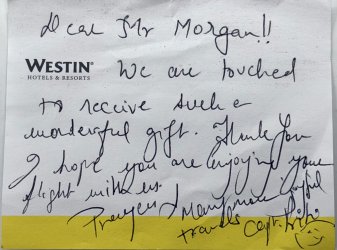 Dear Mr Morgan!!
WESTIN®
HOTELS & RESORTS
We are touched
to receive such a
wonderful gift. Thank You
I hope you are enjoying your
flight with us.
Prayers & Many more joyful
travels Capt.